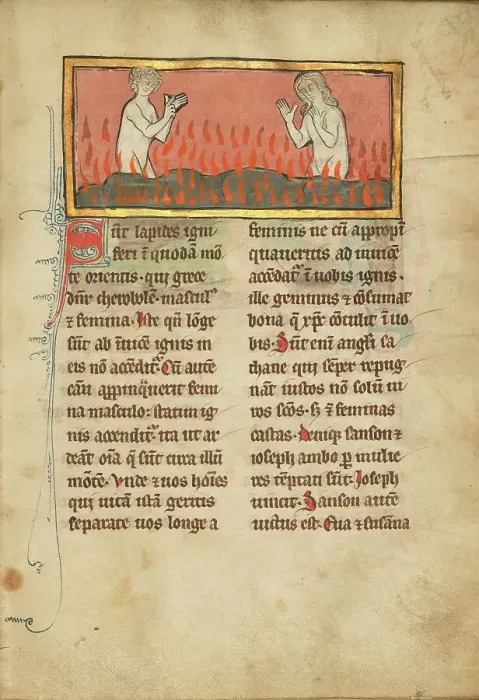 Sūt lapides igni
feri ī quodā mō
te orientis · qui grece
dn̄r chewbole · mascul9
⁊ femina. Iste qn̄ lōge
sūt ab īuicē ignis in
eis nō accēdit̄. Cū autē
casu appinq̄uerit femi
na masculo: statim ig
nis accendit̄ · ita ut ar
deāt oīa q̄ sūt circa illū
mōtē · Vnde ⁊ uos hoīes
qui uitā istā geritis
separate uos longe a
feminis ne cū appropī
quaueritis ad īuicē
accēdat̄ ī uobis ignis ·
ille geminus ⁊ cōsumat
bona q̄ xp̄c cōtulit ī uo
bis · Sūt enī angli sa
thane qui sēper repug
nāt iustos nō solū ui
ros scōs · s; ⁊ feminas
castas · Deniq; sanson ⁊
ioseph ambo p̱ mulie
res tēptati sūt · Ioseph
uincit · Sanson autē
uictus est · Eua ⁊ susāna